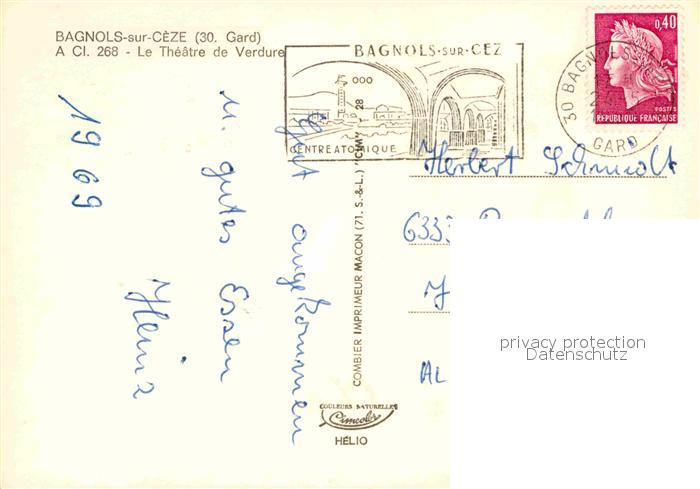 BAGNOLS-sur-CÈZE (30. Gard)
A CI. 268 - Le Théâtre de Verdure
BAGNOLS-SUR-CEZ
000
28
CENTRE ATOMIQUE
0,40
POSTES
RÉPUBLIQUE FRANÇAISE
30 BAGNOLS
GARD
1969
Gut angekommen
u. gutes Essen
Heinz
COMBIER IMPRIMEUR MACON (71. S.-&-L.) "CIM"
COULEURS NATURELLES
Cimcolor
HÉLIO
Herbert Schmidt
6333
AL
privacy protection
Datenschutz